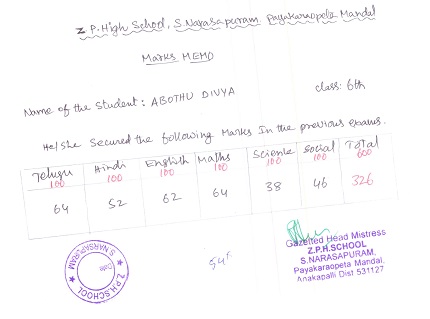 Z P. High School, S. Narasapuram, Payakaraopeta Mandal
Marks MEMO
Name of the Student : ABOTHU DIVYA class: 6th
He/She Secured the following Marks In the previous exams.
Telugu Hindi English Maths Science Social Total
100 100 100 100 100 100 600
64 52 62 64 38 46 326
Gazetted Head Mistress
Z.P.H.SCHOOL
S.NARASAPURAM,
Payakaraopeta Mandal,
Anakapalli Dist 531127
Z.P.H.SCHOOL
S.NARASAPURAM
Date